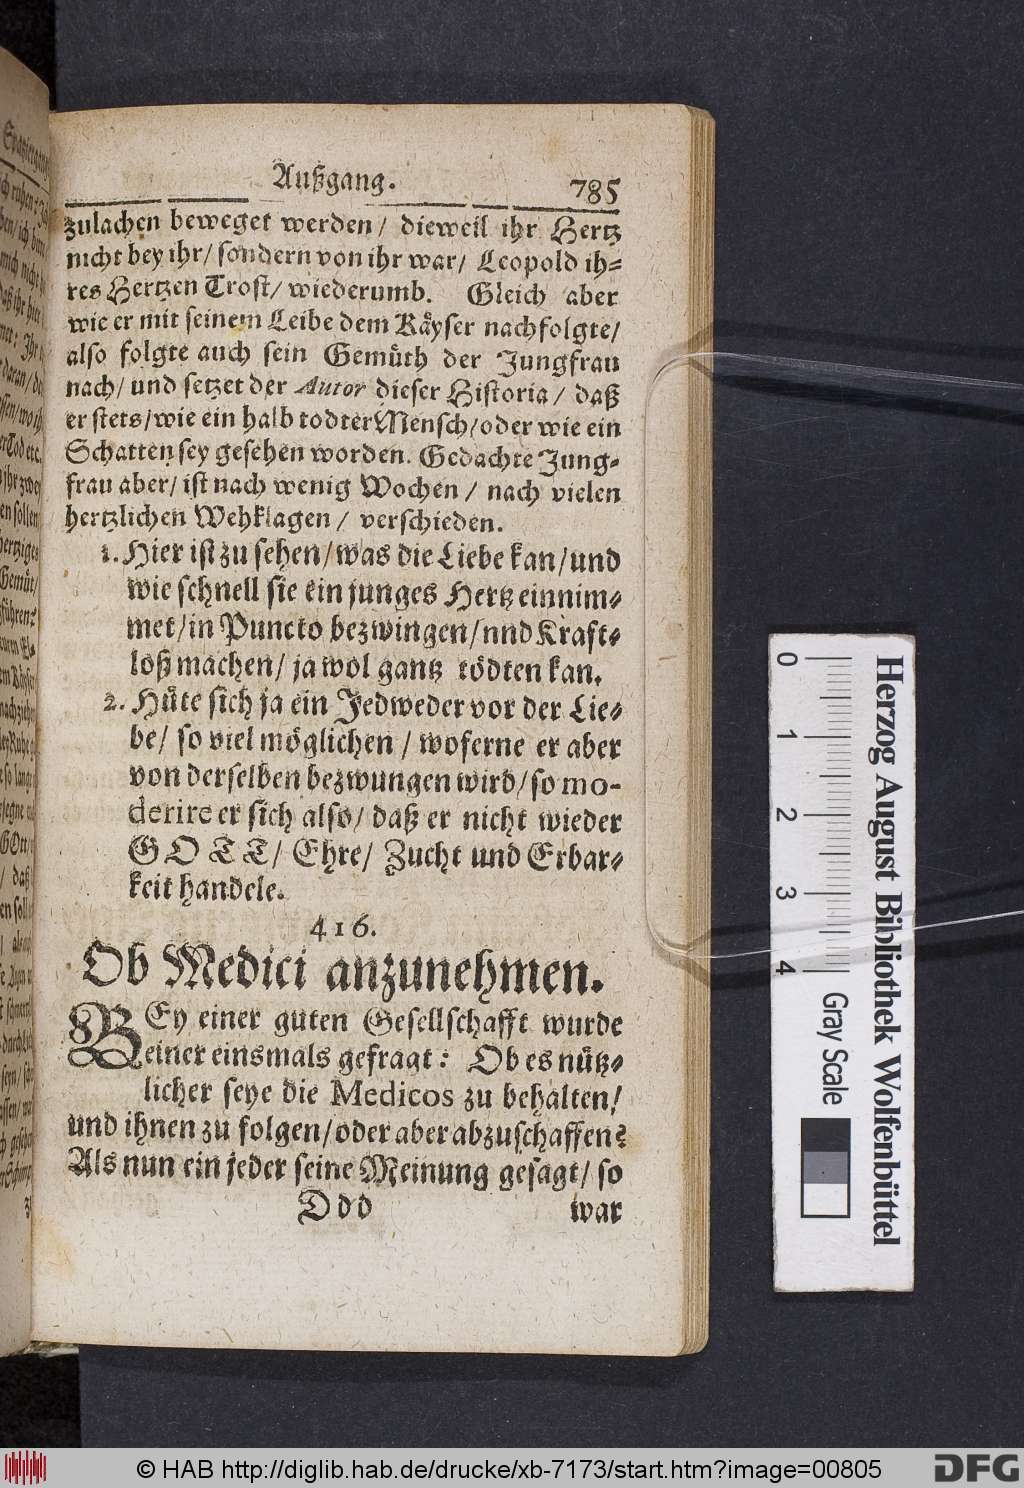 Außgang.
785
zulachen beweget werden/ dieweil ihr Hertz
nicht bey ihr/ sondern von ihr war/ Leopold ih=
res Hertzen Trost/ wiederumb. Gleich aber
wie er mit seinem Leibe dem Käyser nachfolgte/
also folgte auch sein Gemüth der Jungfrau
nach/ und setzet der Autor dieser Historia/ daß
er stets/ wie ein halb todter Mensch/ oder wie ein
Schatten sey gesehen worden. Gedachte Jung=
frau aber/ ist nach wenig Wochen/ nach vielen
hertzlichen Wehklagen/ verschieden.
1. Hier ist zu sehen/ was die Liebe kan/ und
wie schnell sie ein junges Hertz einnim=
met/ in Puncto bezwingen/ nnd Kraft=
loß machen/ ja wol gantz tödten kan.
2. Hüte sich ja ein Jedweder vor der Lie=
be/ so viel möglichen/ woferne er aber
von derselben bezwungen wird/ so mo-
derire er sich also/ daß er nicht wieder
GOTT/ Ehre/ Zucht und Erbar=
keit handele.
416.
Ob Medici anzunehmen.
BEy einer guten Gesellschafft wurde
einer einsmals gefragt: Ob es nütz=
licher seye die Medicos zu behalten/
und ihnen zu folgen/ oder aber abzuschaffen?
Als nun ein jeder seine Meinung gesagt/ so
Ddd
war
0 1 2 3 4
Gray Scale
Herzog August Bibliothek Wolfenbüttel
© HAB http://diglib.hab.de/drucke/xb-7173/start.htm?image=00805
DFG